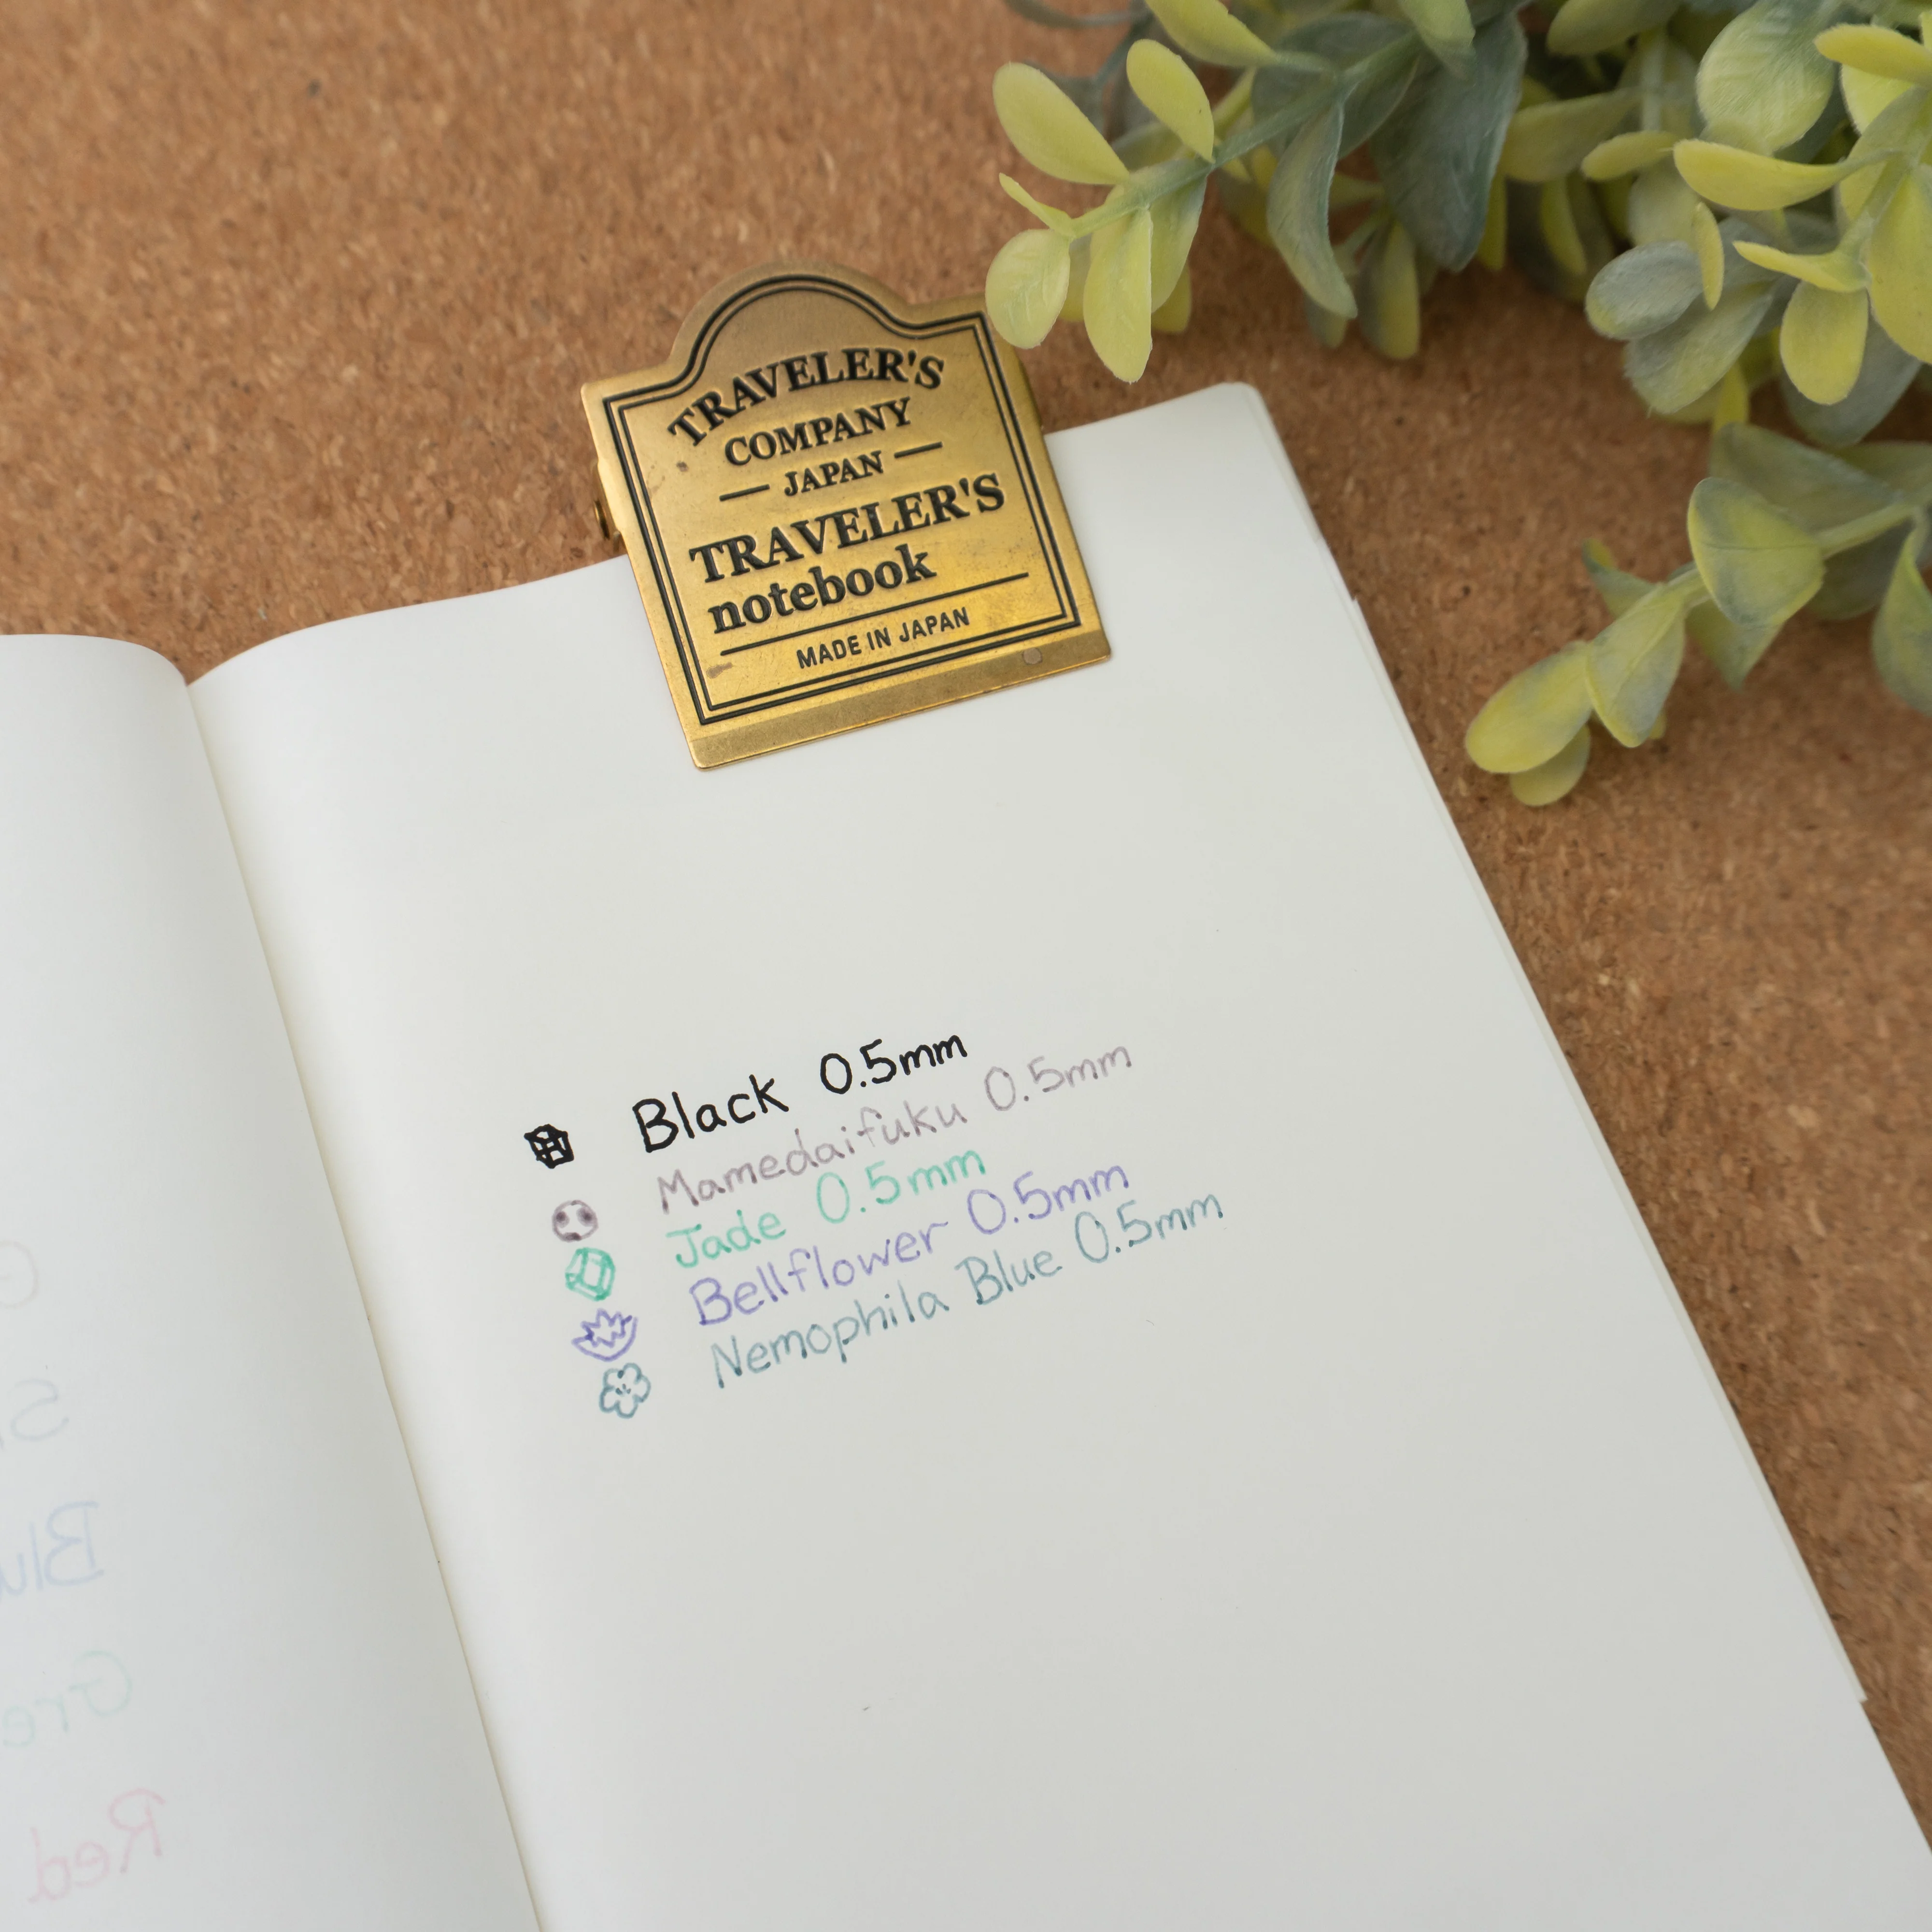 TRAVELER'S
COMPANY
JAPAN
TRAVELER'S
notebook
MADE IN JAPAN
Black 0.5mm
Mamedaifuku 0.5mm
Jade 0.5mm
Bellflower 0.5mm
Nemophila Blue 0.5mm
Red